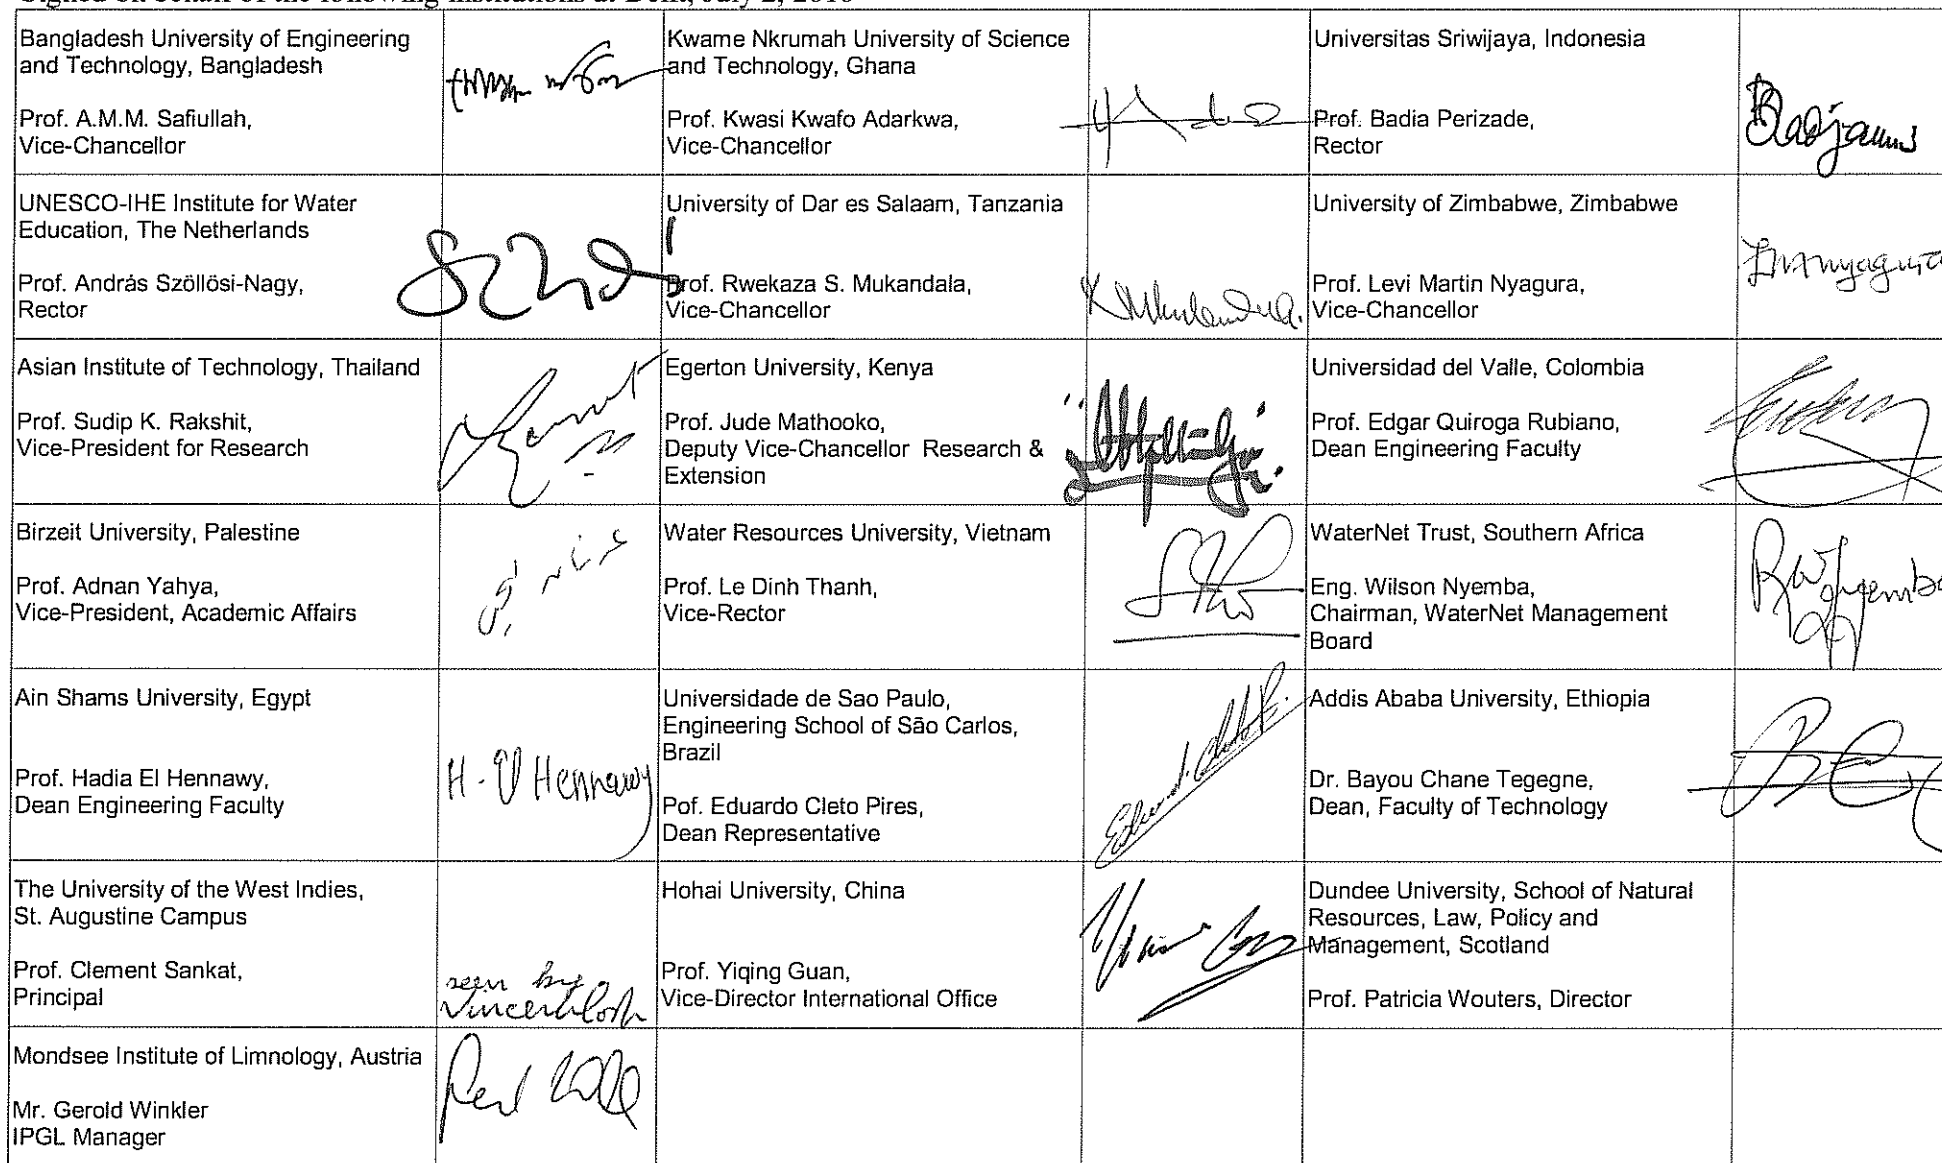 Signed on behalf of the following institutions at Delft, July 2, 2010
Bangladesh University of Engineering
and Technology, Bangladesh
Prof. A.M.M. Safiullah,
Vice-Chancellor
Kwame Nkrumah University of Science
and Technology, Ghana
Prof. Kwasi Kwafo Adarkwa,
Vice-Chancellor
Universitas Sriwijaya, Indonesia
Prof. Badia Perizade,
Rector
UNESCO-IHE Institute for Water
Education, The Netherlands
Prof. András Szöllösi-Nagy,
Rector
University of Dar es Salaam, Tanzania
Prof. Rwekaza S. Mukandala,
Vice-Chancellor
University of Zimbabwe, Zimbabwe
Prof. Levi Martin Nyagura,
Vice-Chancellor
Asian Institute of Technology, Thailand
Prof. Sudip K. Rakshit,
Vice-President for Research
Egerton University, Kenya
Prof. Jude Mathooko,
Deputy Vice-Chancellor Research &
Extension
Universidad del Valle, Colombia
Prof. Edgar Quiroga Rubiano,
Dean Engineering Faculty
Birzeit University, Palestine
Prof. Adnan Yahya,
Vice-President, Academic Affairs
Water Resources University, Vietnam
Prof. Le Dinh Thanh,
Vice-Rector
WaterNet Trust, Southern Africa
Eng. Wilson Nyemba,
Chairman, WaterNet Management
Board
Ain Shams University, Egypt
Prof. Hadia El Hennawy,
Dean Engineering Faculty
H. El Hennawy
Universidade de Sao Paulo,
Engineering School of São Carlos,
Brazil
Pof. Eduardo Cleto Pires,
Dean Representative
Addis Ababa University, Ethiopia
Dr. Bayou Chane Tegegne,
Dean, Faculty of Technology
The University of the West Indies,
St. Augustine Campus
Prof. Clement Sankat,
Principal
seen by
Hohai University, China
Prof. Yiqing Guan,
Vice-Director International Office
Dundee University, School of Natural
Resources, Law, Policy and
Management, Scotland
Prof. Patricia Wouters, Director
Mondsee Institute of Limnology, Austria
Mr. Gerold Winkler
IPGL Manager